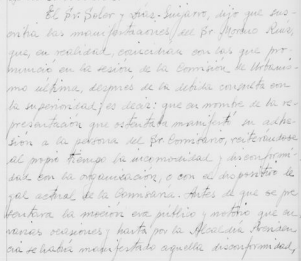 El Sr. Soler y Díaz-Guijarro, dijo que sos-
tenía las manifestaciones del Sr. Moreno Ruiz,
que, en realidad, coincidían con las que pro-
nunció en la sesión de la Comisión de Urbanis-
mo última, después de la debida consulta con
la superioridad, es decir: que en nombre de la re-
presentación que ostentaba manifestó su adhe-
sión a la persona del Sr. Comisario, reiterándose
al propio tiempo la incomodidad y disconformi-
dad con la organización, o con el dispositivo le-
gal actual de la Comisaría. Antes de que se pre-
sentara la moción era público y notorio que en
varias ocasiones y hasta por la Alcaldía Presiden-
cia se había manifestado aquella disconformidad,